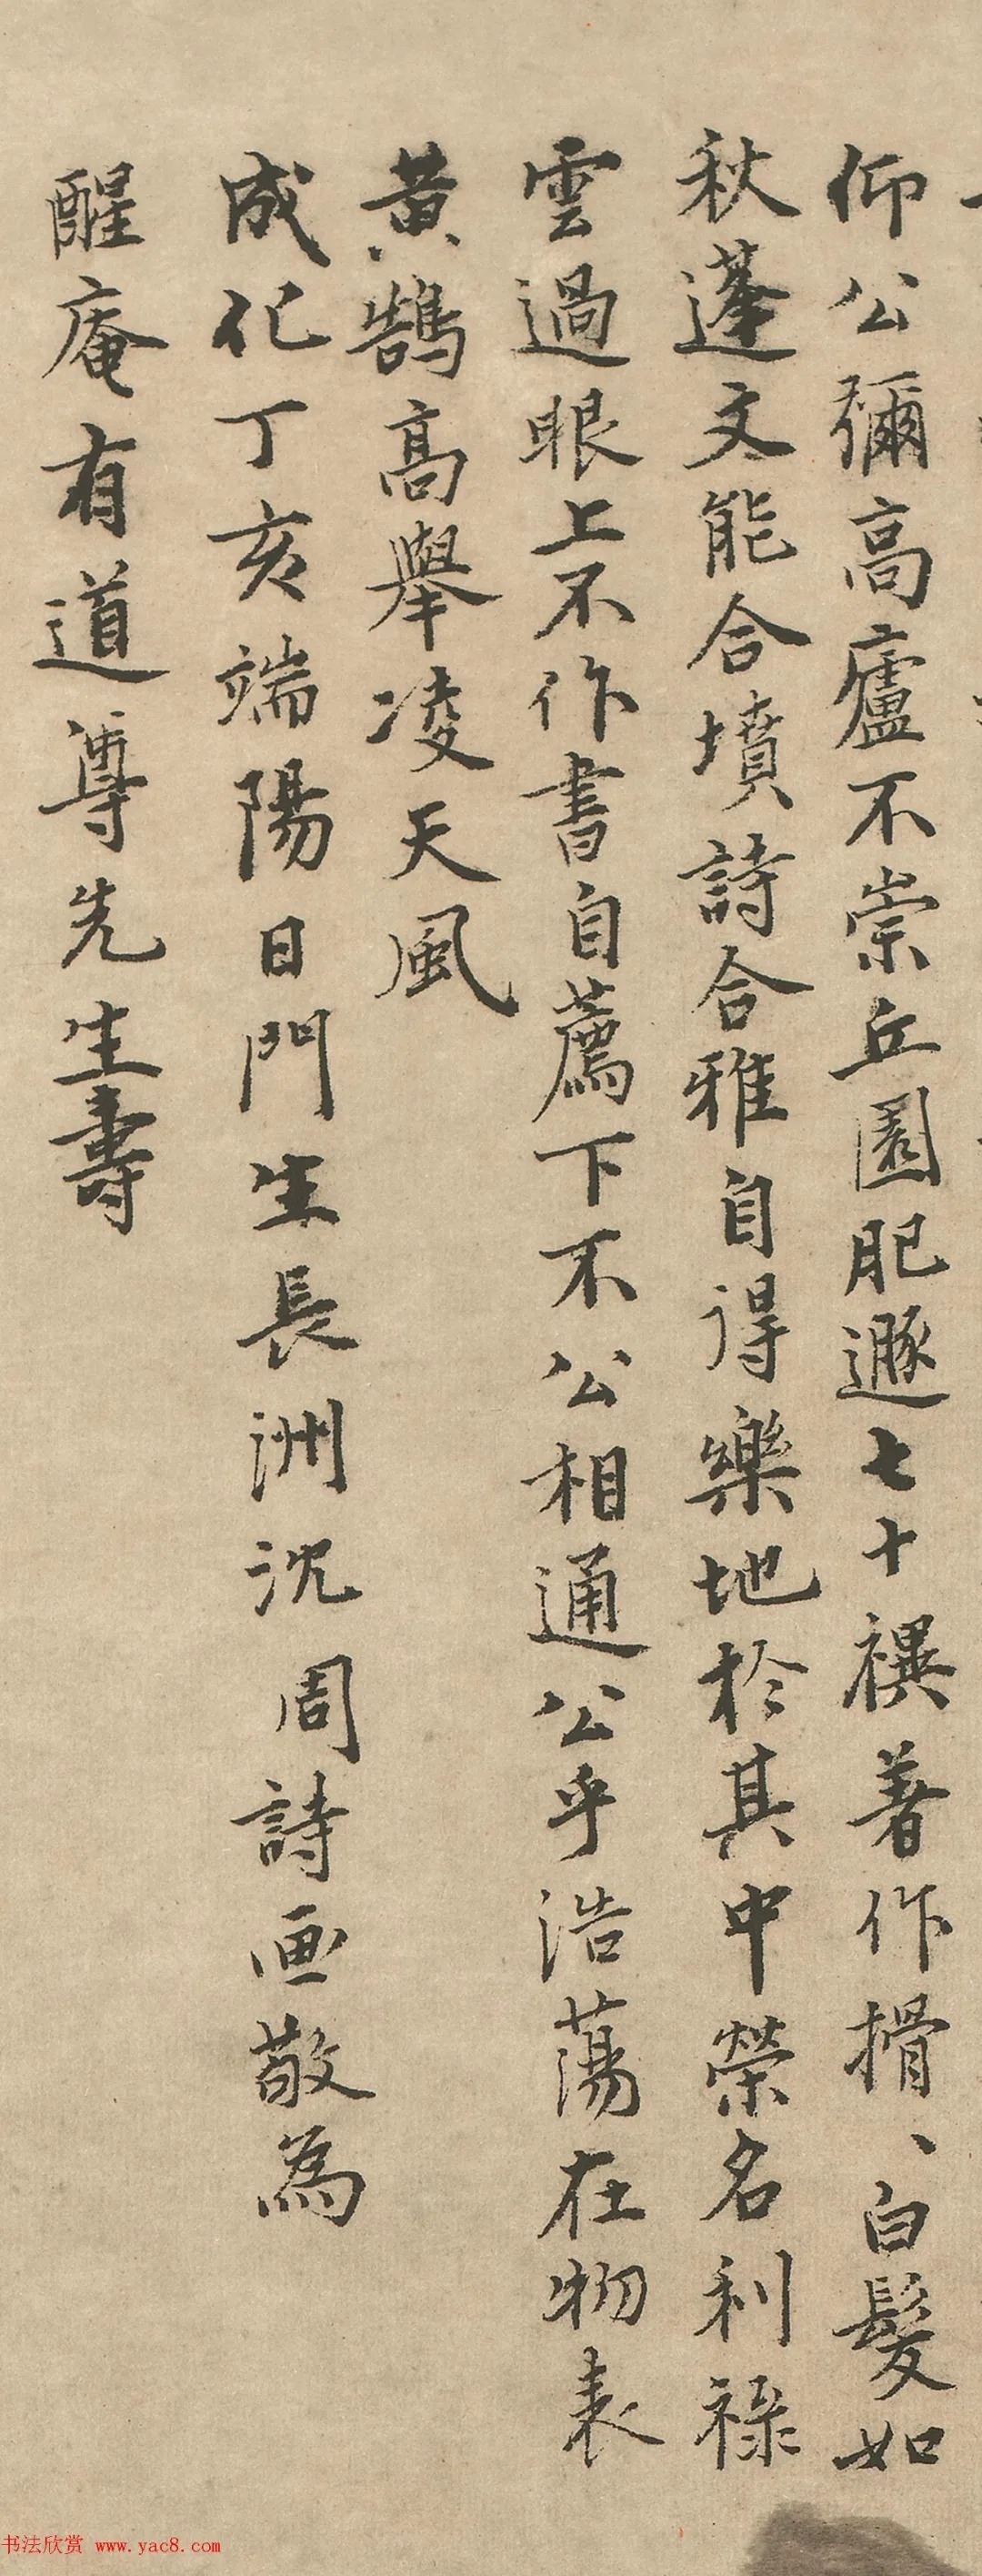 仰公彌高廬不崇丘園肥遯七十禩著作搰、白髮如
秋蓬文能合墳詩合雅自得樂地於其中榮名利祿
雲過眼上不作書自薦下不公相通公乎浩蕩在物表
黃鵠高舉凌天風
成化丁亥端陽日門生長洲沈周詩画敬為
醒庵有道尊先生壽
书法欣赏 www.yac8.com